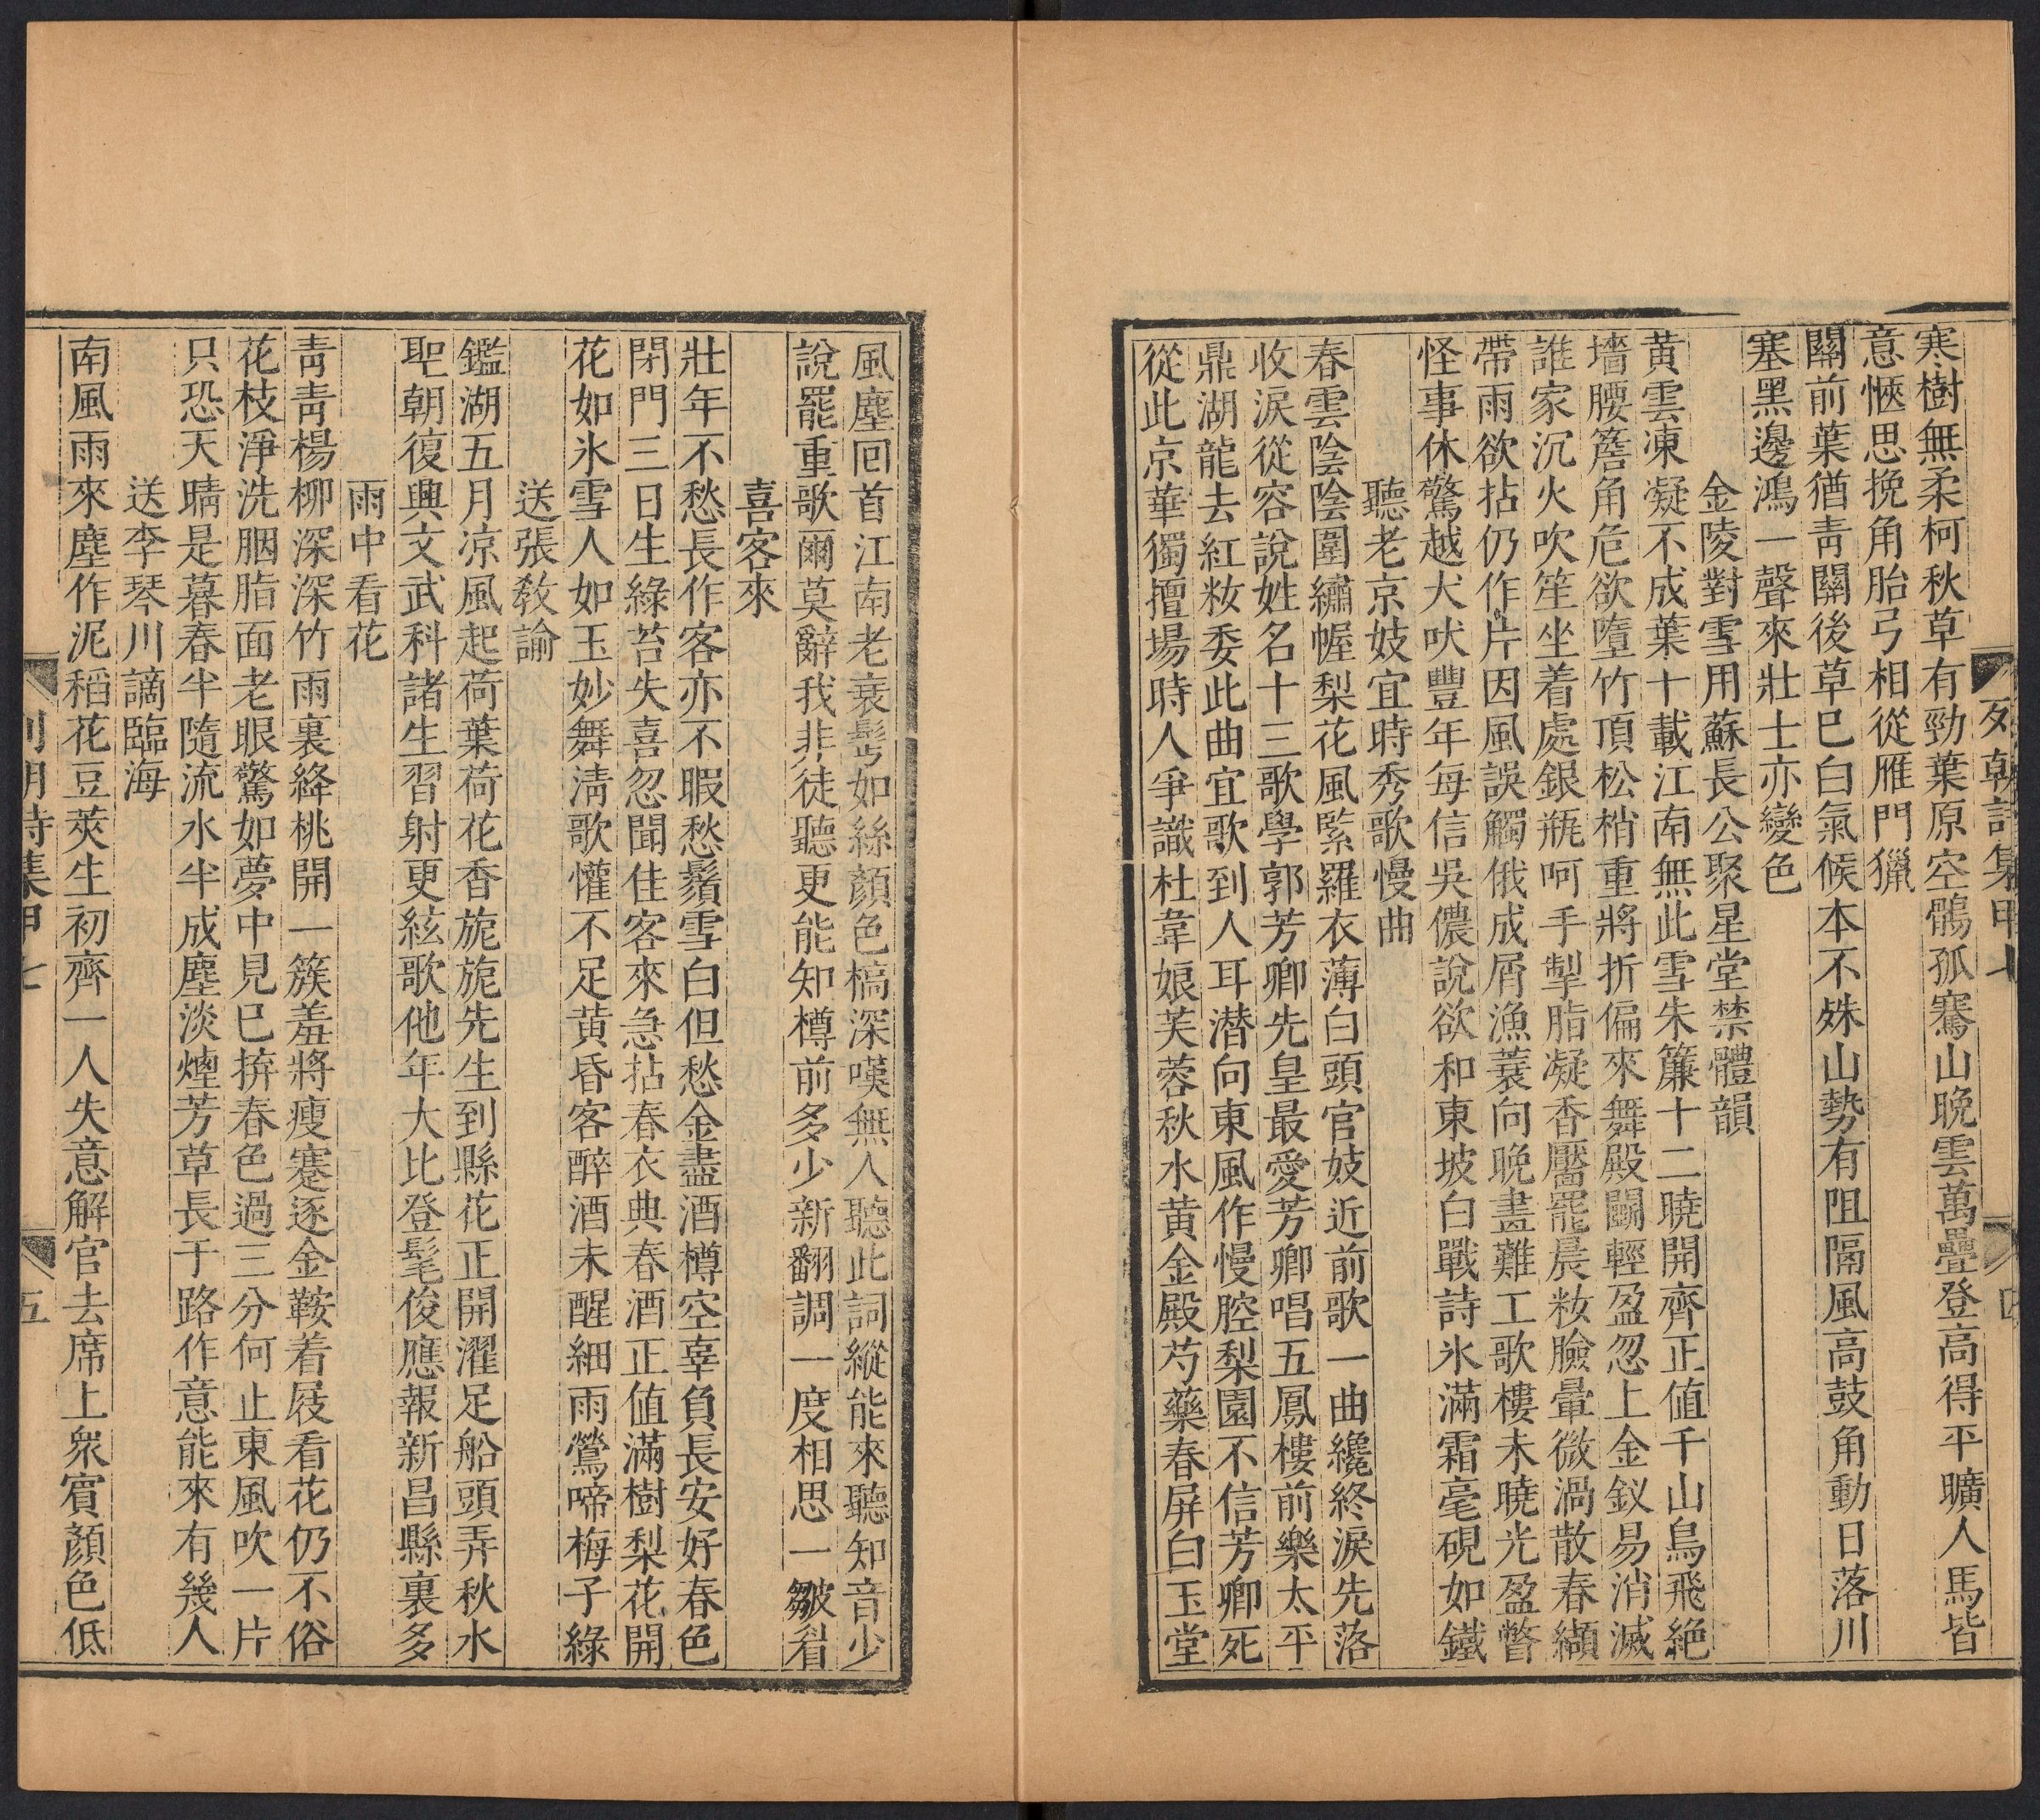 列朝詩集甲七
四
寒樹無柔柯秋草有勁葉原空鶻孤騫山晚雲萬疊登高得平曠人馬皆
意愜思挽角胎弓相從雁門獵
關前葉猶青關後草已白氣候本不殊山勢有阻隔風高鼓角動日落川
塞黑邊鴻一聲來壯士亦變色
金陵對雪用蘇長公聚星堂禁體韻
黃雲凍凝不成葉十載江南無此雪朱簾十二曉開齊正值千山鳥飛絕
墻腰簷角危欲墮竹頂松梢重將折偏來舞殿鬭輕盈忽上金釵易消滅
誰家沉火吹笙坐着處銀瓶呵手掣脂凝香靨罷晨粧臉暈微渦散春纈
帶雨欲拈仍作片因風誤觸俄成屑漁蓑向晚畫難工歌樓未曉光盈瞥
怪事休驚越犬吠豐年每信吳儂說欲和東坡白戰詩氷滿霜毫硯如鐵
聽老京妓宜時秀歌慢曲
春雲陰陰圍繡幄梨花風緊羅衣薄白頭官妓近前歌一曲纔終淚先落
收淚從容說姓名十三歌學郭芳卿先皇最愛芳卿唱五鳳樓前樂太平
鼎湖龍去紅粧委此曲宜歌到人耳潛向東風作慢腔梨園不信芳卿死
從此京華獨擅場時人爭識杜韋娘芙蓉秋水黃金殿芍藥春屏白玉堂
風塵回首江南老衰髩如絲顏色槁深嘆無人聽此詞縱能來聽知音少
說罷重歌爾莫辭我非徒聽更能知樽前多少新翻調一度相思一皺眉
喜客來
壯年不愁長作客亦不暇愁鬚雪白但愁金盡酒樽空辜負長安好春色
閉門三日生綠苔失喜忽聞佳客來急拈春衣典春酒正值滿樹梨花開
花如氷雪人如玉妙舞清歌懽不足黃昏客醉酒未醒細雨鶯啼梅子綠
送張教諭
鑑湖五月凉風起荷葉荷花香旎旎先生到縣花正開濯足船頭弄秋水
聖朝復興文武科諸生習射更絃歌他年大比登髦俊應報新昌縣裏多
雨中看花
青青楊柳深深竹雨裏絳桃開一簇羞將瘦蹇逐金鞍着屐看花仍不俗
花枝淨洗胭脂面老眼驚如夢中見已拚春色過三分何止東風吹一片
只恐天晴是暮春半隨流水半成塵淡煙芳草長于路作意能來有幾人
送李琴川謫臨海
南風雨來塵作泥稻花豆莢生初齊一人失意解官去席上衆賓顏色低
列朝詩集甲七
五